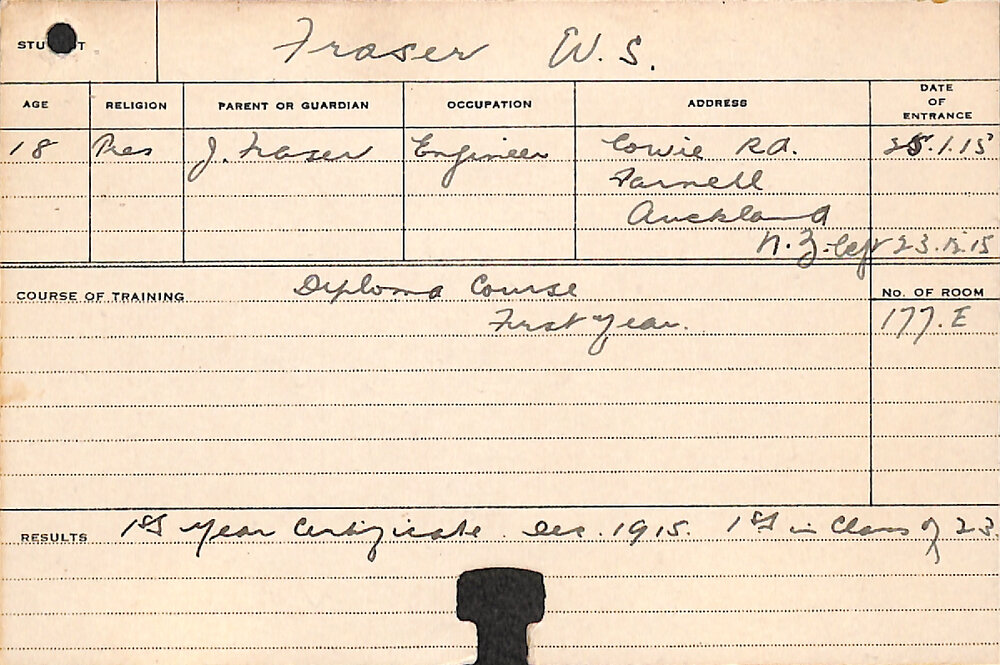 STUDENT Fraser W. S.
AGE RELIGION PARENT OR GUARDIAN OCCUPATION ADDRESS DATE OF ENTRANCE
18 Pres J. Fraser Engineer Cowie Rd. 25.1.15
Parnell
Auckland
N.Z. left 23.12.15
COURSE OF TRAINING Diploma Course No. OF ROOM
First Year. 177. E
RESULTS 1st Year Certificate. Dec. 1915. 1st in Class of 23.